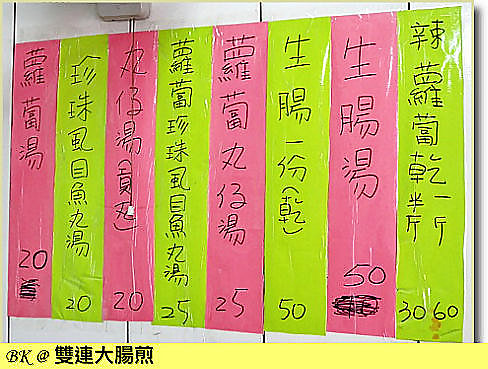 辣蘿蔔乾一斤半斤
30 60
生腸湯
50
生腸一份(乾)
50
蘿蔔丸仔湯
25
蘿蔔珍珠風目魚丸湯
25
丸仔湯(貢丸)
20
珍珠風目魚丸湯
20
蘿蔔湯
20
BK @ 雙連大腸煎